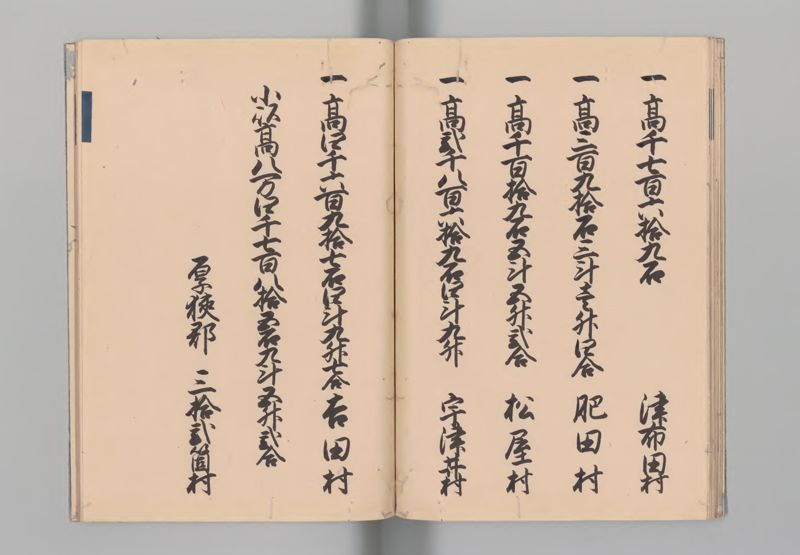 一 高千七百六拾九石 津布田村
一 高三百九拾石三斗壱升四合 肥田村
一 高千百拾九石五斗五升弐合 松屋村
一 高弐千八百六拾九石四斗九升 宇津井村
一 高四千六百九拾七石四斗九升七合 吉田村
小以高八万四千七百八拾五石九斗五升弐合
厚狭郡 三拾弐箇村